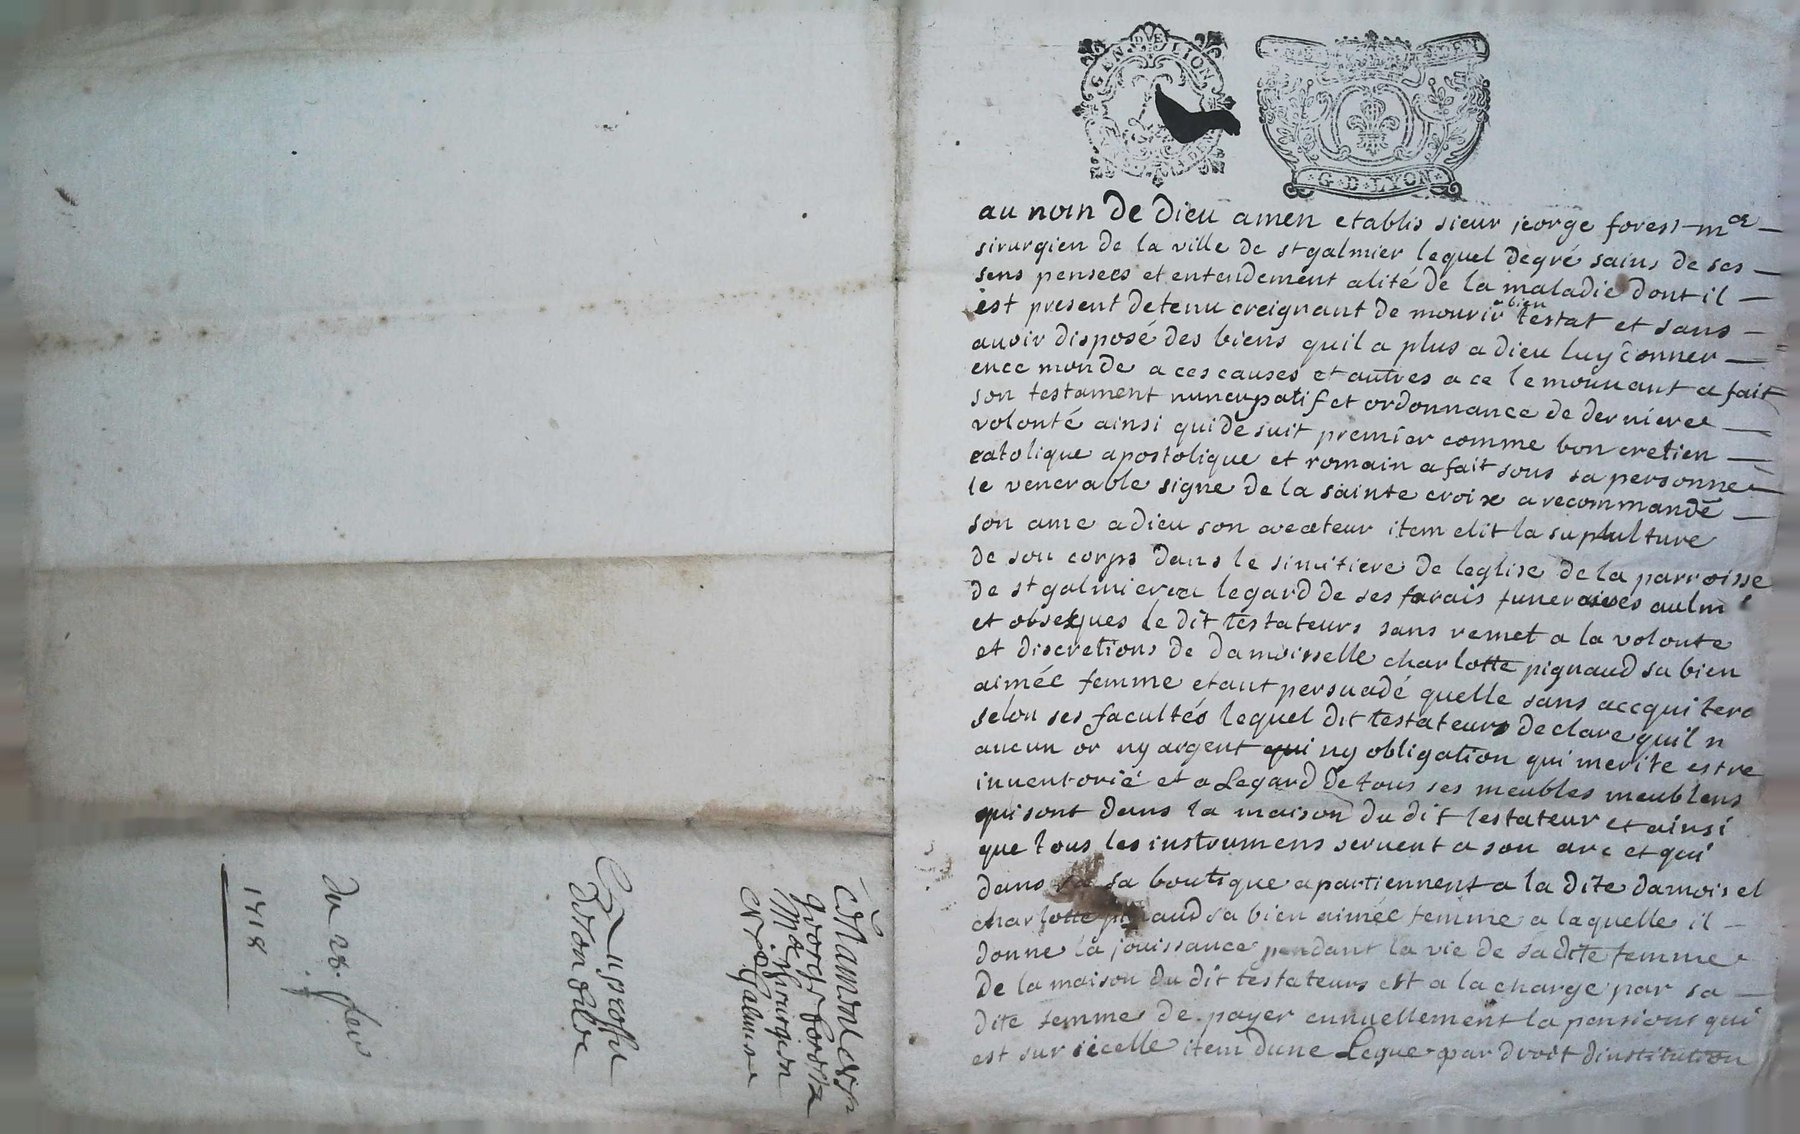 GEN DE LION
G. D. LYON
au nom de dieu amen etablis sieur jeorge forest me
sirurgien de la ville de st galmier lequel degré sains de ses
sens pensees et entendement alité de la maladie dont il
est present detenu creignant de mourir abien testat et sans
auoir disposé des biens quil a plus a dieu luy donner
ence monde a ces causes et autres a ce le mouuant a fait
son testament nuncupatif et ordonnance de derniere
volonté ainsi quide suit premier comme bon cretien
catolique apostolique et romain a fait sous sa personne
le venerable signe de la sainte croix a recommandé
son ame a dieu son createur item elit la supulture
de son corps dans le simitiere de leglise de la parroisse
de st galmier a legard de ses frais funeraires aulm
et obseques le dit testateurs sans remet a la volonte
et discretions de damoisselle charlotte pignaud sa bien
aimée femme etant persuadé quelle sans accquitera
selon ses facultés lequel dit testateurs declare quil n
aucun or ny argent qui ny obligation qui merite estre
inuentorié et a Legard de tous ses meubles meublens
qui sont dans la maison du dit testateur et ainsi
que tous les instrumens seruent a son arc et qui
dans sa boutique apartiennent a la dite damoisel
charlotte pignaud sa bien aimée femme a laquelle il
donne la jouissance pendant la vie de sadite femme
de la maison du dit testateurs est a la charge par sa
dite femme de payer annuellement la pensions qui
est sur icelle item dune Legue par droit dinstitution
george forestz
Me Chirurgien
de st Galmier
du 28. feu
1718